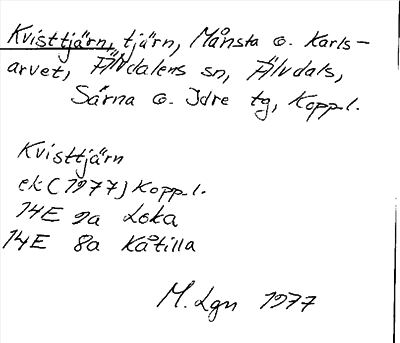 Kvisttjärn, tjärn, Månsta o. Karls-
arvet, Älvdalens sn, Älvdals,
Särna o. Idre tg, Koppl.
Kvisttjärn
ek (1977) Koppl.
14E 9a Loka
14E 8a Kåtilla
M. Lgn 1977